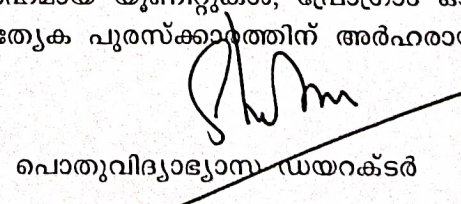 യൂണിറ്റുകൾ, പ്രോഗ്രാം
പുരസ്ക്കാരത്തിന് അർഹരായ
പൊതുവിദ്യാഭ്യാസ ഡയറക്ടർ